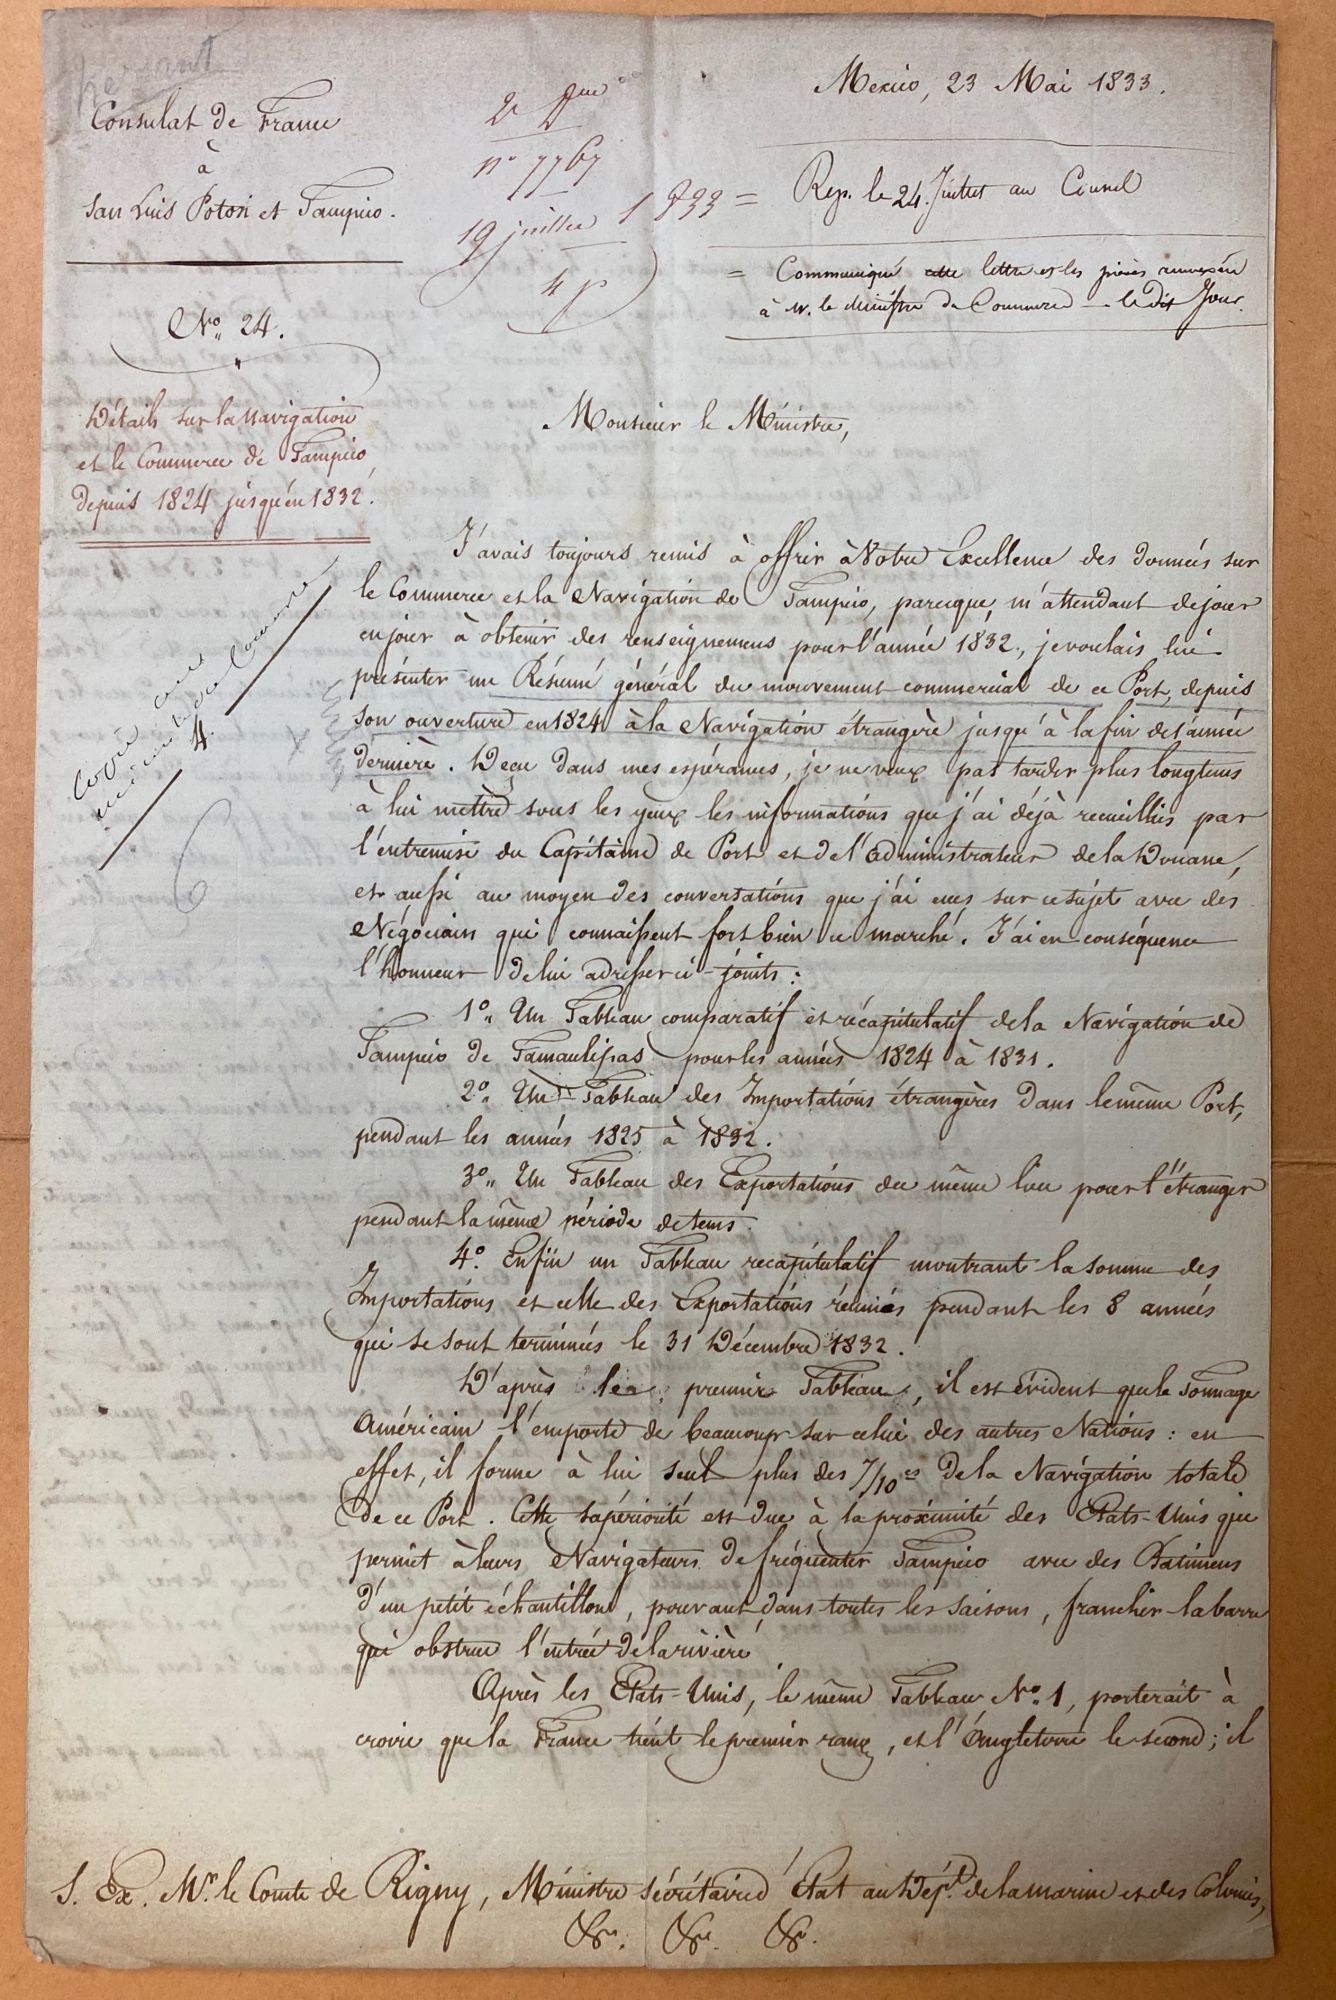 Mexico, 23 Mai 1833.
Consulat de France
à
San Luis Potosi et Tampico.
No. 24.
2e
no 7767
19 juillet 1833
4 p
= Rep. le 24 Juillet au Consul
= Communiqué cette lettre et les pièces
à M. le Ministre du Commerce le dit Jour.
Détails sur la Navigation
et le Commerce de Tampico,
depuis 1824 jusqu'en 1832.
Copié
4.
Monsieur le Ministre,
J'avais toujours remis à offrir à Votre Excellence des données sur
le Commerce et la Navigation de Tampico, parceque, m'attendant de jour
en jour à obtenir des renseignemens pour l'année 1832, je voulais lui
présenter un Résumé général du mouvement commercial de ce Port, depuis
son ouverture en 1824 à la Navigation étrangère jusqu'à la fin de l'année
dernière. Déçu dans mes espérances, je ne veux pas tarder plus longtems
à lui mettre sous les yeux les informations que j'ai déjà recueillies par
l'entremise du Capitaine de Port et de l'administrateur de la Douane,
et aussi au moyen des conversations que j'ai eues sur ce sujet avec des
Négocians qui connaissent fort bien ce marché. J'ai en conséquence
l'honneur de lui adresser ci-joints :
1o. Un Tableau comparatif et récapitulatif de la Navigation de
Tampico de Tamaulipas pour les années 1824 à 1831.
2o. Un Tableau des Importations étrangères dans le même Port,
pendant les années 1825 à 1832.
3o. Un Tableau des Exportations du même lieu pour l'étranger
pendant la même période de tems.
4o. Enfin un Tableau recapitulatif montrant la somme des
Importations et celle des Exportations réunies pendant les 8 années
qui se sont terminées le 31 Décembre 1832.
D'après le premier Tableau, il est évident que le Tonnage
Américain l'emporte de beaucoup sur celui des autres Nations : en
effet, il forme à lui seul plus des 7/10es de la Navigation totale
de ce Port. Cette supériorité est due à la proximité des Etats-Unis qui
permet à leurs Navigateurs de fréquenter Tampico avec des Bâtimens
d'un petit échantillon, pouvant dans toutes les saisons, franchir la barre
qui obstrue l'entrée de la rivière.
Après les Etats-Unis, le même Tableau No. 1, porterait à
croire que la France tient le premier rang, et l'Angleterre le second ; il
S. Ex. Mr. le Comte de Rigny, Ministre Sécrétaire d'Etat au Dépt. de la marine et des Colonies,
&c. &c. &c.